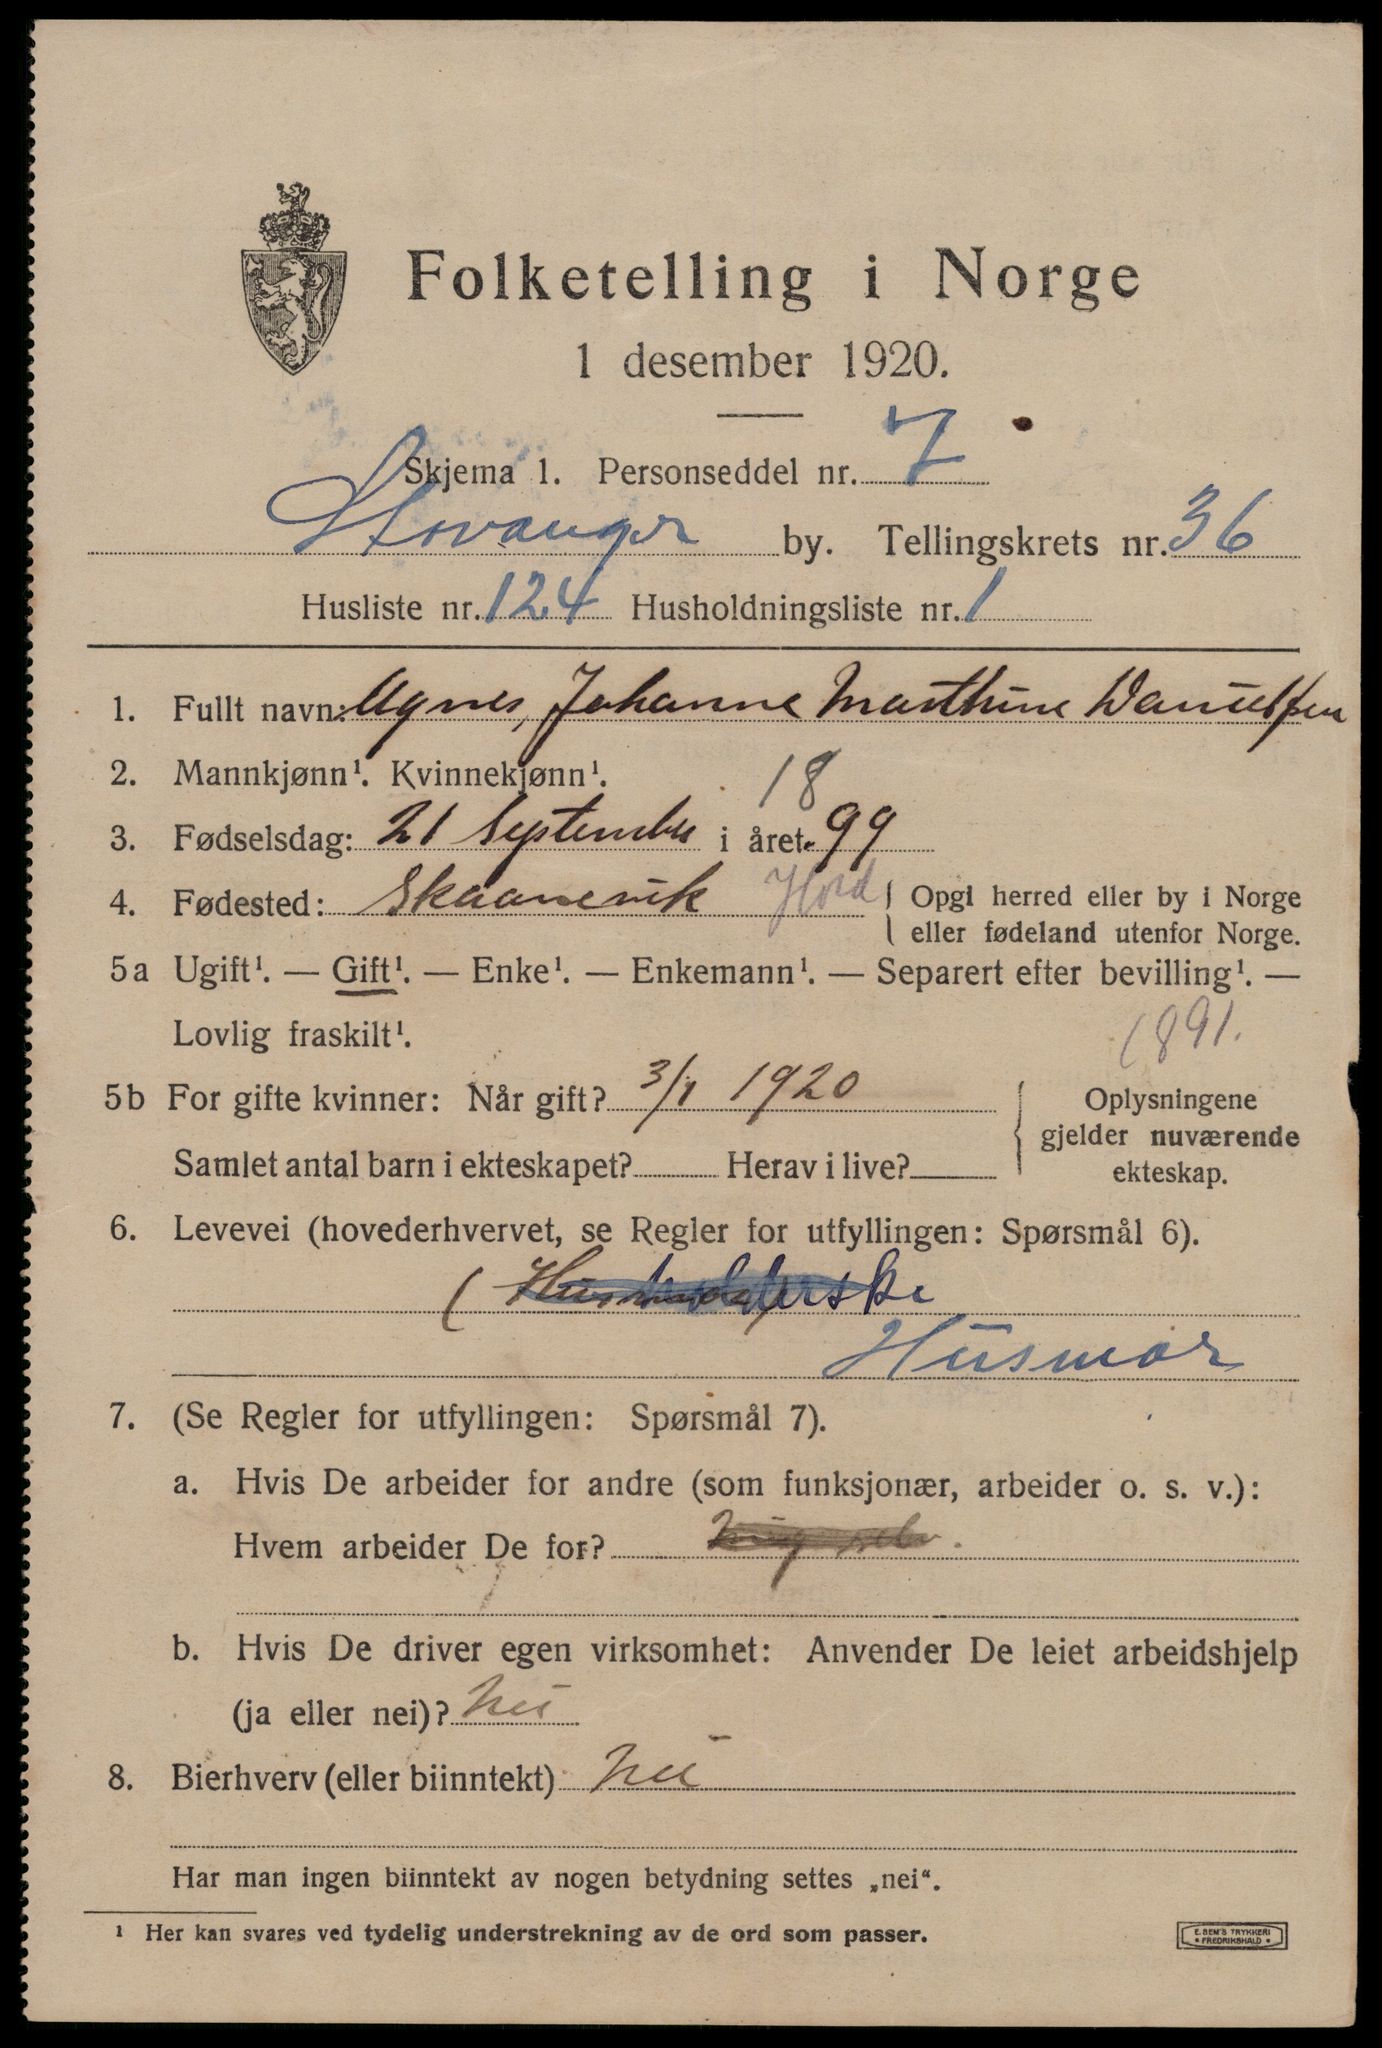 Folketelling i Norge
1 desember 1920.
Skjema 1. Personseddel nr. 7
Stavanger by. Tellingskrets nr. 36
Husliste nr. 124 Husholdningsliste nr. 1
1. Fullt navn: Agnes, Johanne Marthine Danielsen
2. Mannkjønn¹. Kvinnekjønn¹. 18
3. Fødselsdag: 21 September i året 99
4. Fødested: Skaanevik Hord { Opgi herred eller by i Norge
eller fødeland utenfor Norge.
5a Ugift¹. — Gift¹. — Enke¹. — Enkemann¹. — Separert efter bevilling¹. —
Lovlig fraskilt¹. 1891.
5b For gifte kvinner: Når gift? 3/1 1920 { Oplysningene
gjelder nuværende
Samlet antal barn i ekteskapet? Herav i live? ekteskap.
6. Levevei (hovederhvervet, se Regler for utfyllingen: Spørsmål 6).
Husmor
7. (Se Regler for utfyllingen: Spørsmål 7).
a. Hvis De arbeider for andre (som funksjonær, arbeider o. s. v.):
Hvem arbeider De for? Mig selv.
b. Hvis De driver egen virksomhet: Anvender De leiet arbeidshjelp
(ja eller nei)? Nei
8. Bierhverv (eller biinntekt) Nei
Har man ingen biinntekt av nogen betydning settes „nei“.
¹ Her kan svares ved tydelig understrekning av de ord som passer.
E. SEM'S TRYKKERI
FREDRIKSHALD